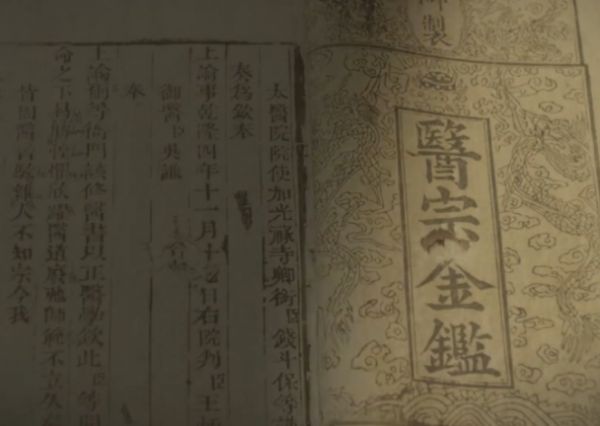 御製
醫宗金鑑
太醫院院使加光祿寺卿銜臣錢斗保等
奏爲欽奉
上諭事乾隆四年十一月十七日右院判臣王
御醫臣吳謙
奉
上諭爾等衙門該修醫書以正醫學欽此臣等聞
命之下醫道廢弛師範不立久
皆因醫書駁雜人不知宗今我